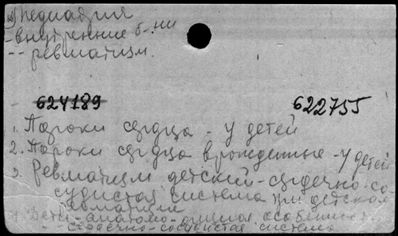 Педиатрия
- внутренние б-ни
-- ревматизм.
624189 622755
1. Пороки сердца - у детей
2. Пороки сердца врожденные - у детей
3. Ревматизм детский - сердечно-со-
судистая система при детском
ревматизме
4. Дети - анатомо- особенност.
-- сердечно-сосудистая система